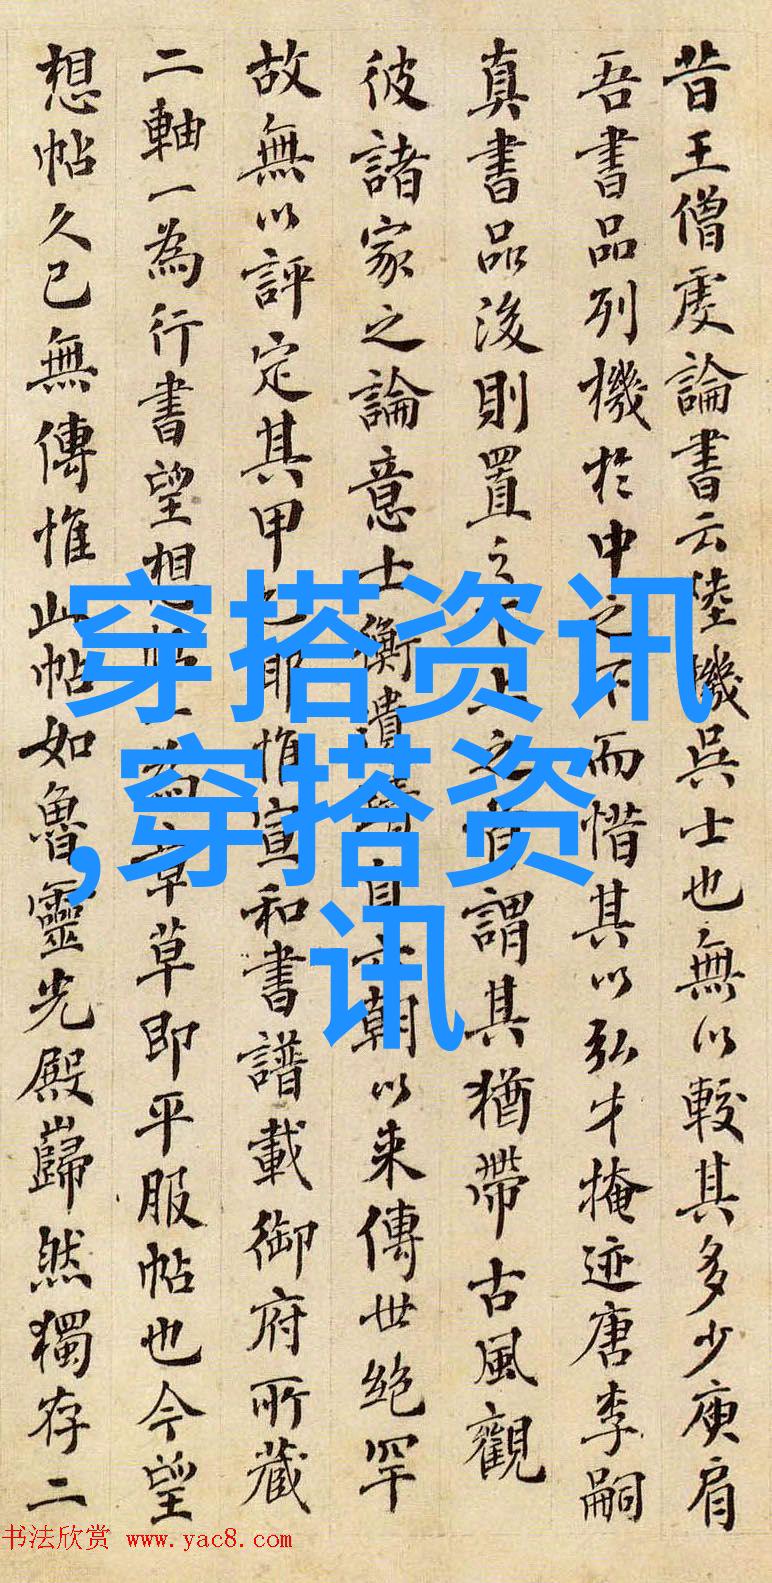 昔王僧虔論書云陸機吳士也無以較其多少庾肩
吾書品列機於中之下而惜其以弘才掩迹唐李嗣
真書品後則置之下上之首謂其猶帶古風觀
彼諸家之論意士衡遺蹟自六朝以来傳世絶罕
故無以評定其甲乙耶惟宣和書譜載御府所藏
二軸一為行書望想帖一為章草即平服帖也今望
想帖久已無傳惟此帖如魯靈光殿巋然獨存二
穿搭资讯
,穿搭资
讯
书法欣赏 www.yac8.com